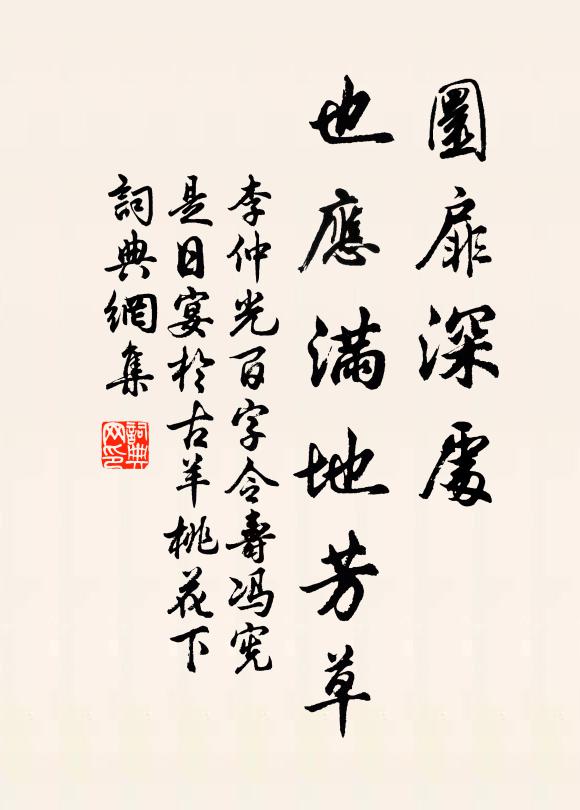 圜扉深處
也應滿地芳草
李仲光百字令壽馮宪
是日宴於古羊桃花下
詞典網集
詞典网印